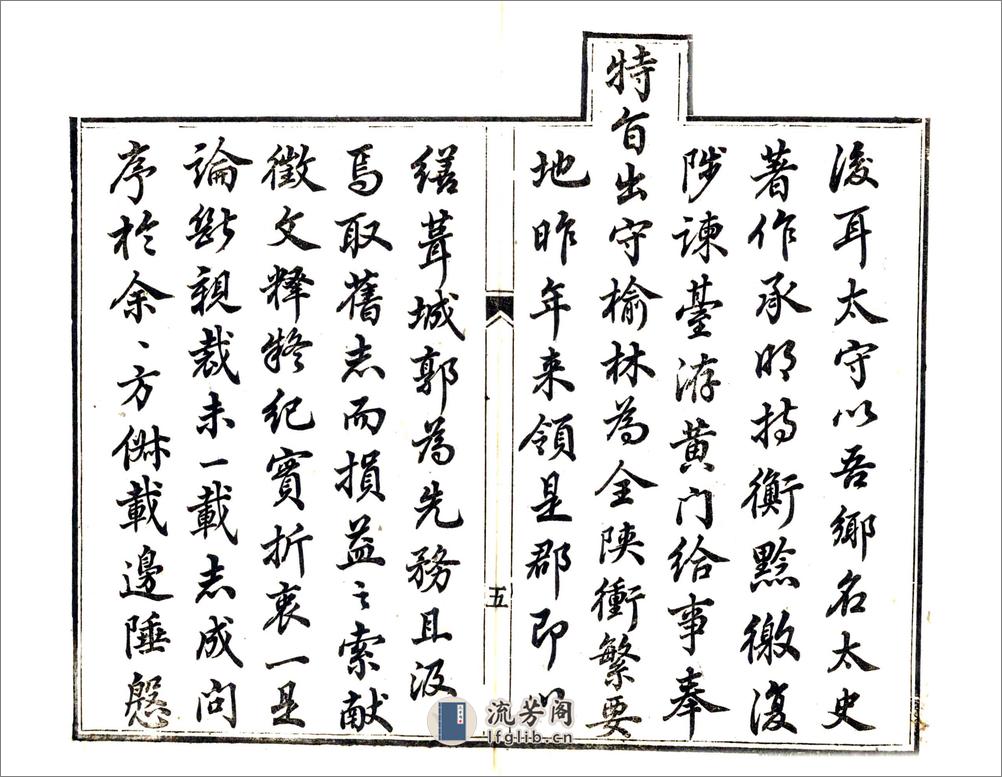 淩耳太守以吾鄉名太史
著作承明持衡黔徼復
陟諫臺游黄门給事奉
特旨出守榆林為全陝衝繁要
地昨年来領是郡即以
繕葺城郭為先務且汲
焉取舊志而損益之索献
徵文釋疑纪實折衷一是
論斷親裁未一載志成问
序於余、方僽載邊陲慇
五
流芳阁
lfglib.cn